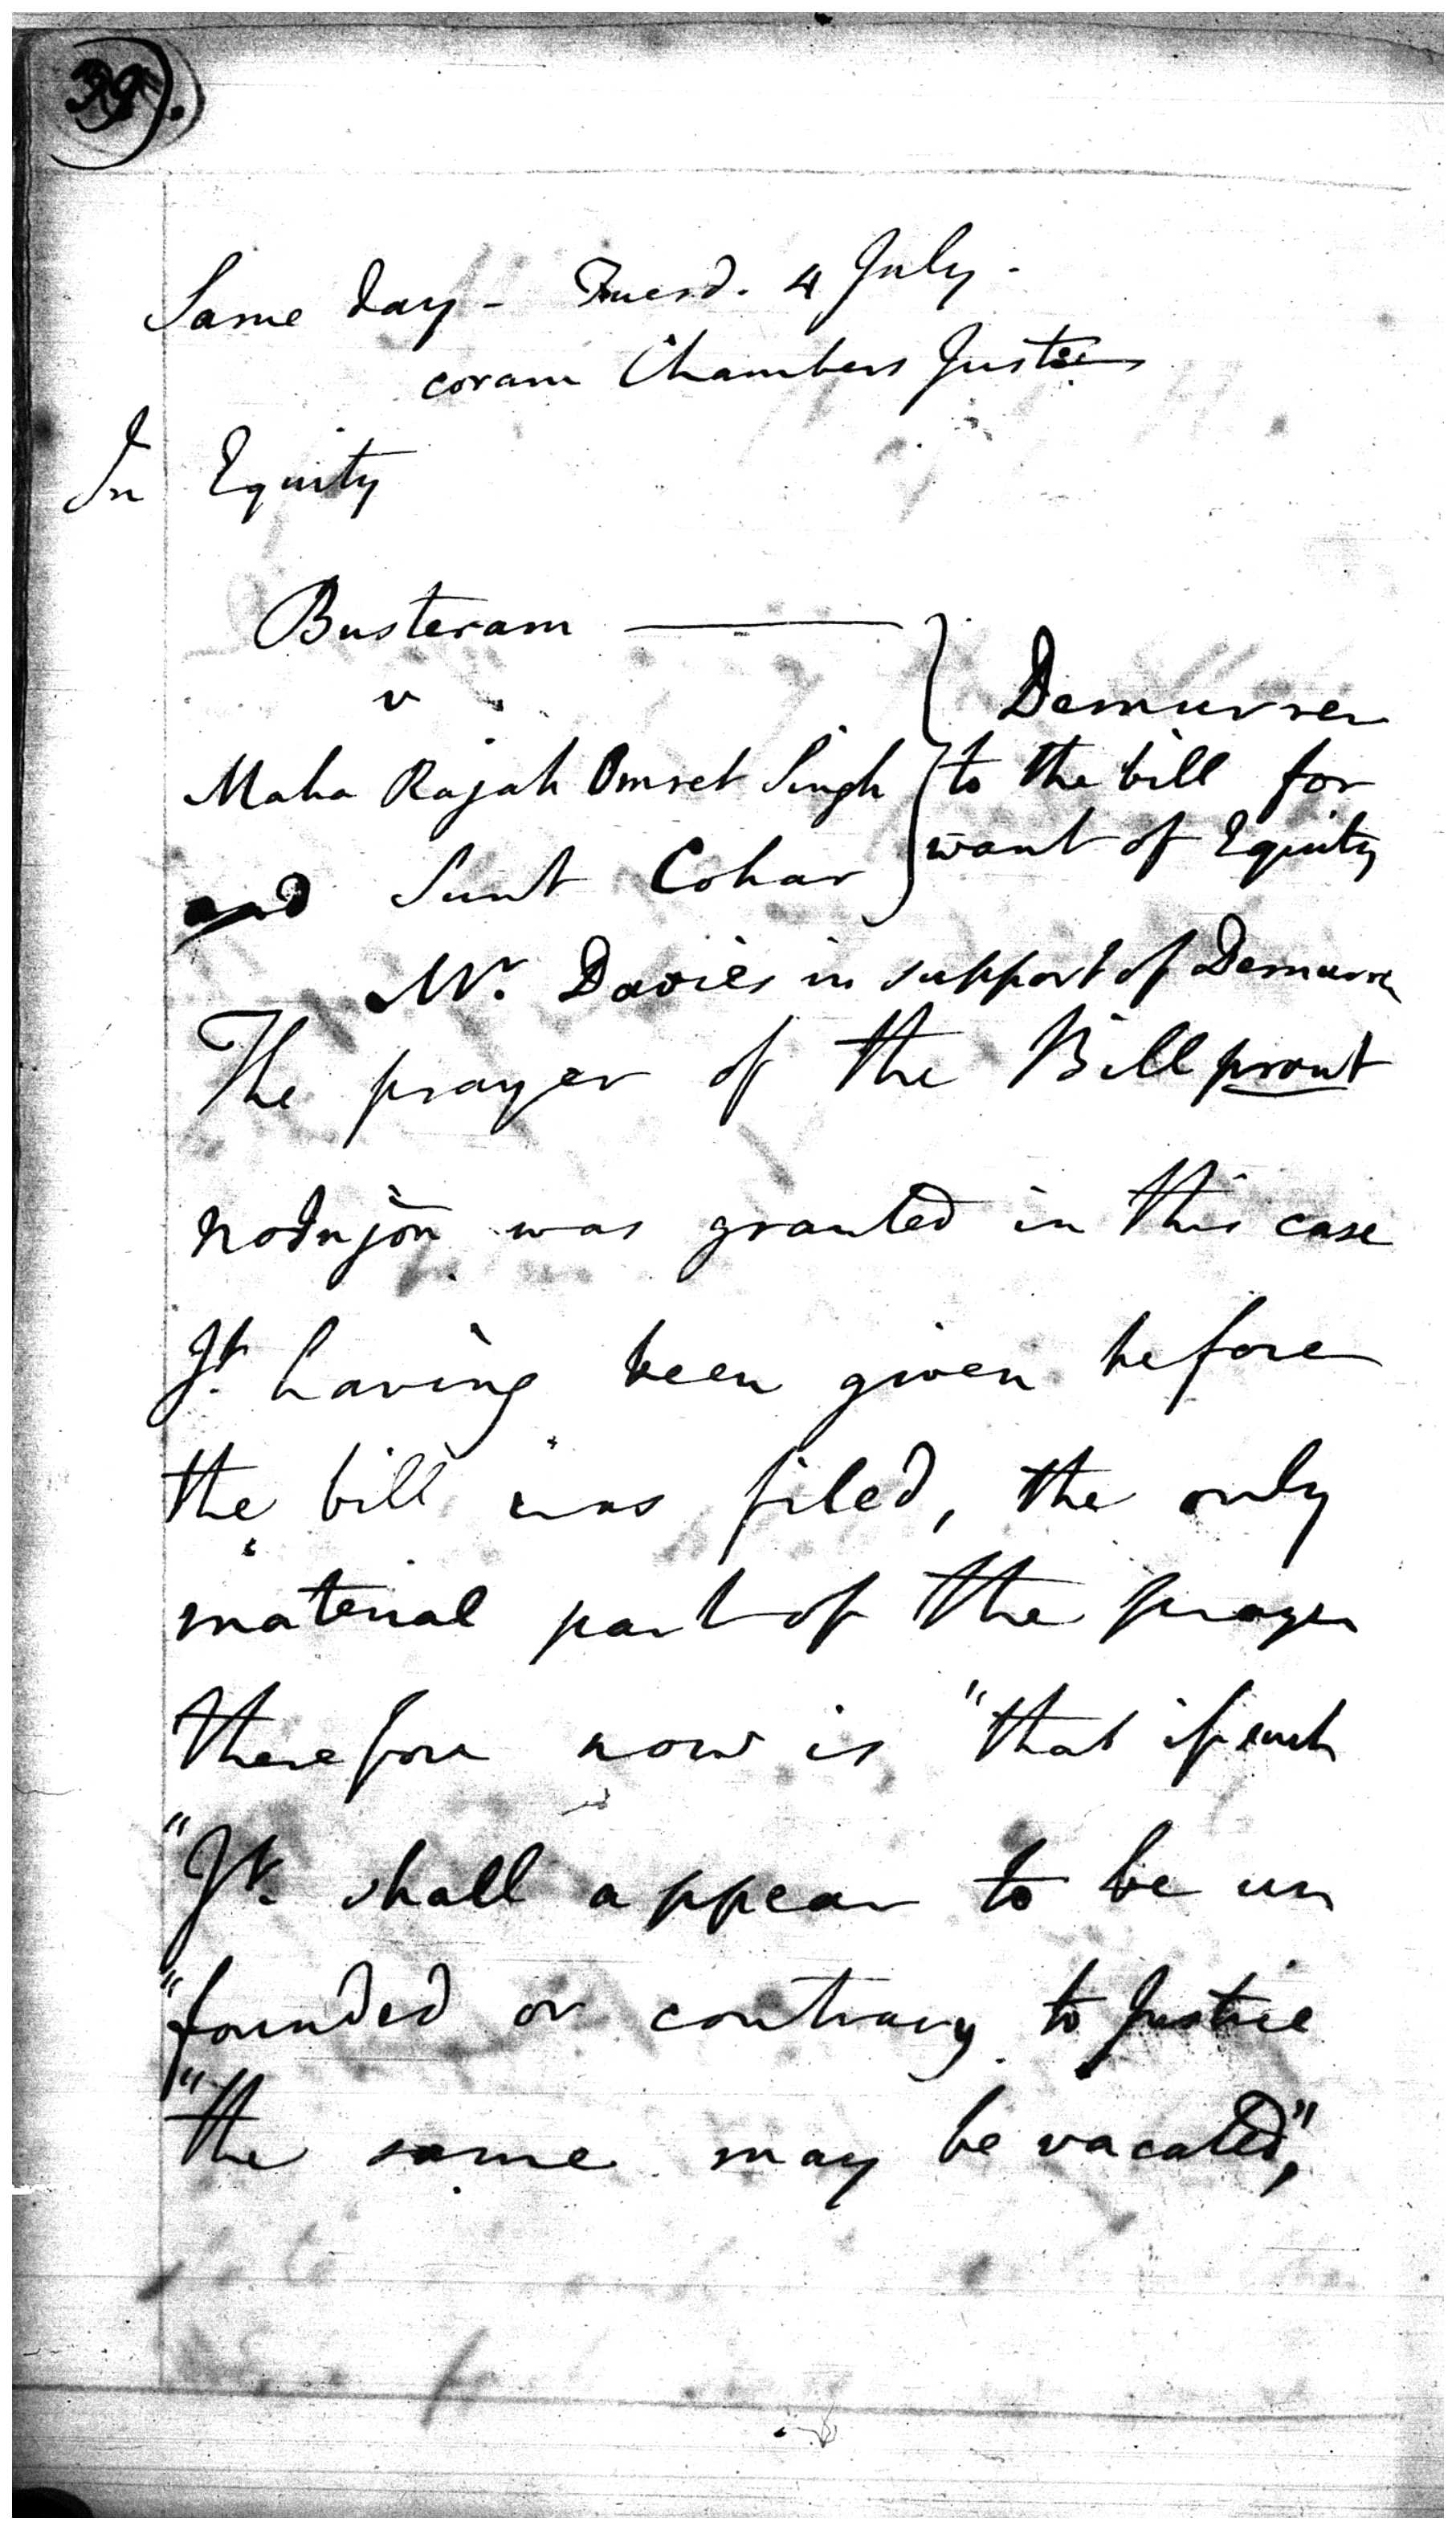 39).
Same day - Tuesd. 4 July.
coram Chambers Justice
In Equity
Busteram
v
Demurrer
Maha Rajah Omret Singh
to the bill for
and Sunt Cohar
want of Equity
Mr. Davies in support of Demurrer
The prayer of the Bill prout
was granted in this case
Jt. having been given before
the bill was filed, the only
material part of the prayer
therefore now is "that if such
"Jt. shall appear to be un
"founded or contrary to Justice
"the same may be vacated",